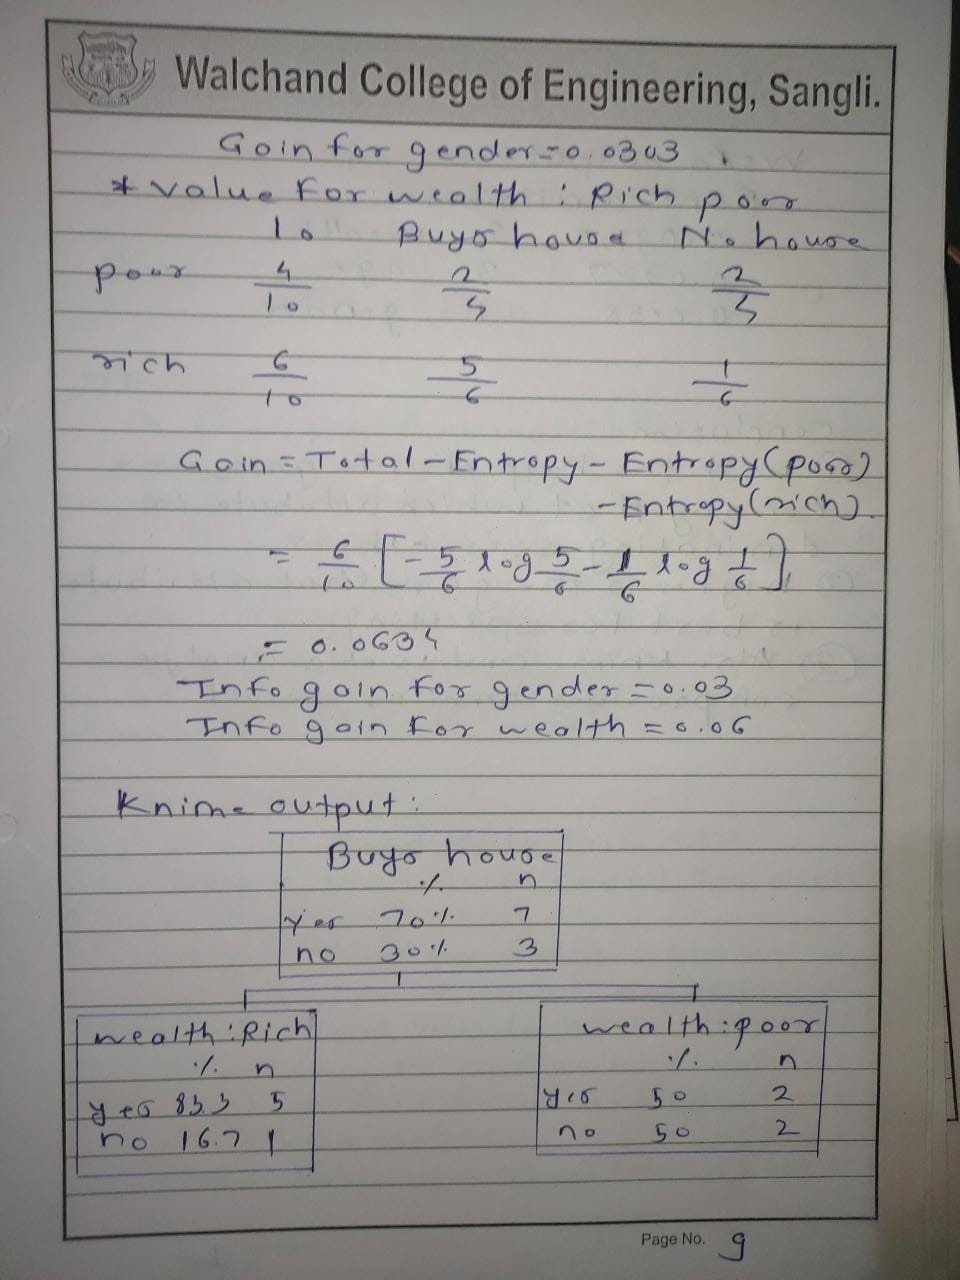 Walchand College of Engineering, Sangli.
Gain for gender = 0.0303
* value for wealth : Rich poor
10 Buys house No house
poor 4/10 2/4 2/4
rich 6/10 5/6 1/6
Gain = Total - Entropy - Entropy (poor)
- Entropy (rich).
= 6/10 [ - 5/6 log 5/6 - 1/6 log 1/6 ]
= 0.0634
Info gain for gender = 0.03
Info gain for wealth = 0.06
Knime output :
Buys house
% n
yes 70% 7
no 30% 3
wealth : Rich
% n
yes 83.3 5
no 16.7 1
wealth : poor
% n
yes 50 2
no 50 2
Page No. 9